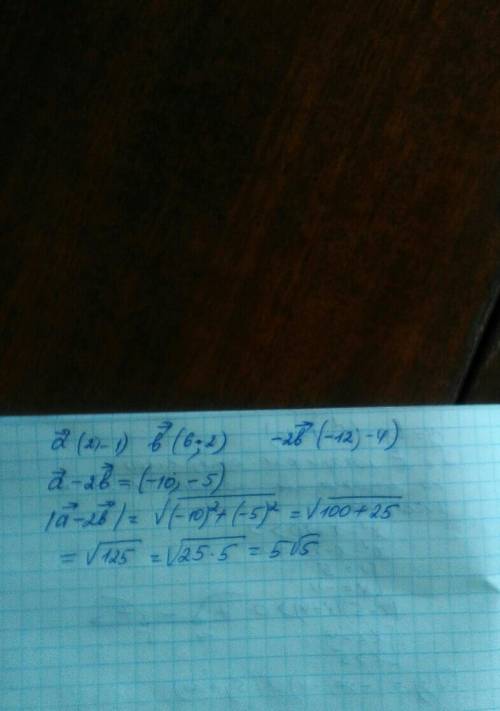 a⃗ (2;-1)  b⃗ (6;2)  -2b⃗ (-12;-4)
a⃗ - 2b⃗ = (-10; -5)
|a⃗ - 2b⃗| = √((-10)² + (-5)²) = √(100 + 25)
= √125 = √(25·5) = 5√5